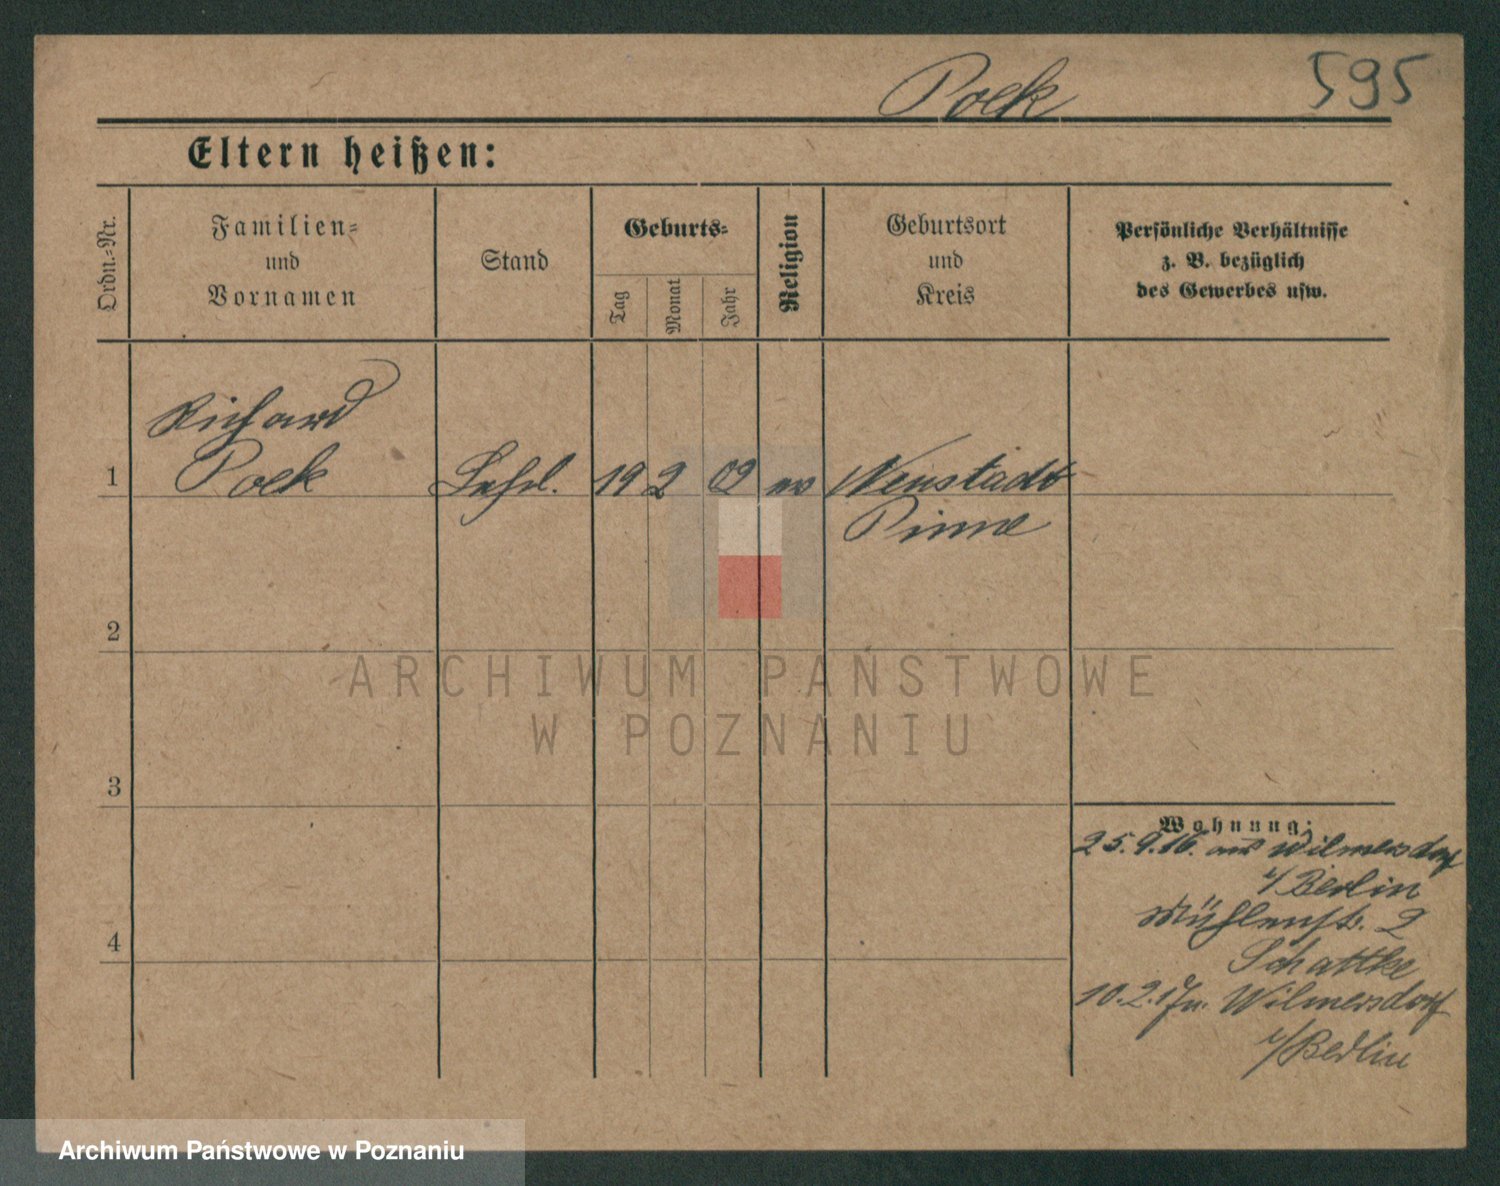 Poek 595
Eltern heißen:
Ordn.-Nr.
Familien-
und
Vornamen
Stand
Geburts-
Tag
Monat
Jahr
Religion
Geburtsort
und
Kreis
Persönliche Verhältnisse
z. B. bezüglich
des Gewerbes usw.
Richard
1 Poek 19 2 02 ev Neustadt
Pinne
2
3
4
ARCHIWUM PAŃSTWOWE
W POZNANIU
Wohnung:
25.9.16. aus Wilmersdorf
b/Berlin
Mühlenstr. 2
Schattke
10.2.17 n. Wilmersdorf
b/Berlin
Archiwum Państwowe w Poznaniu